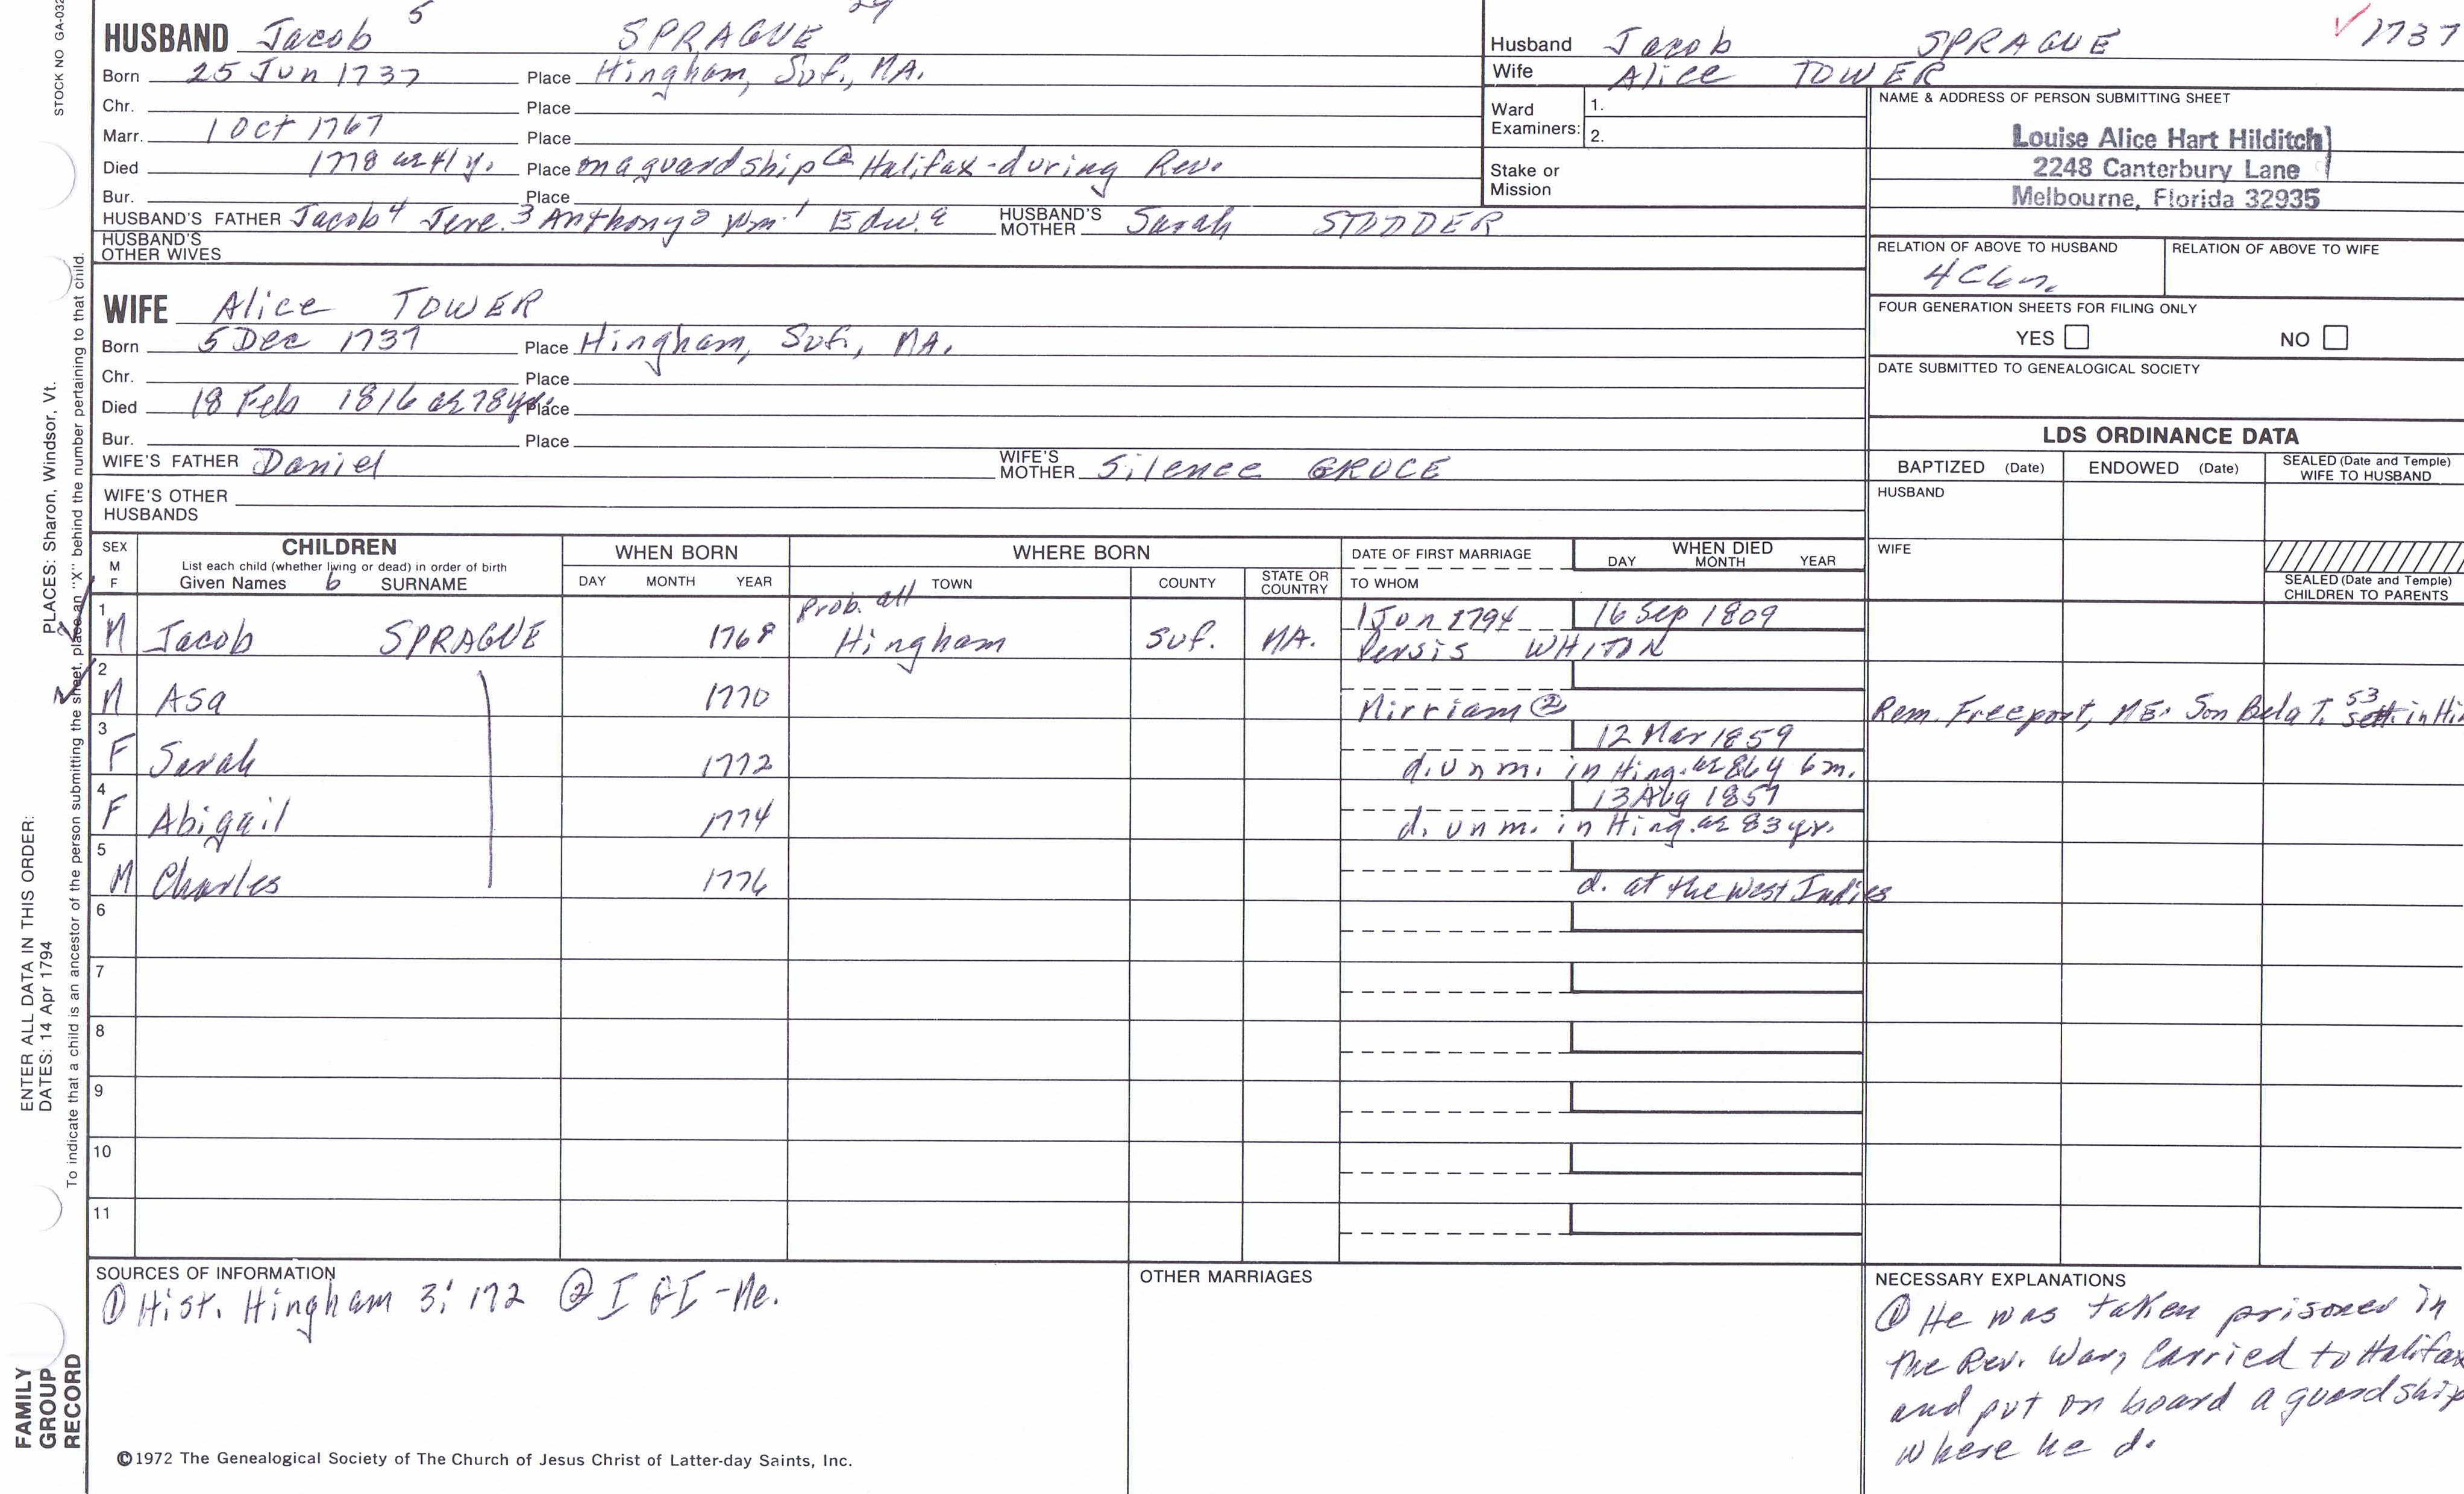 STOCK NO GA-032
5
HUSBAND Jacob SPRAGUE
Born 25 Jun 1737 Place Hingham, Suf., MA.
Chr. Place
Marr. 1 Oct 1767 Place
Died 1778 ae 41 y. Place on a guard ship @ Halifax - during Rev.
Bur. Place
HUSBAND'S FATHER Jacob 4 Jere. 3 Anthony 2 Wm 1 Edw. a HUSBAND'S MOTHER Sarah STODDER
HUSBAND'S OTHER WIVES
WIFE Alice TOWER
Born 5 Dec 1737 Place Hingham, Suf., MA.
Chr. Place
Died 18 Feb 1816 ae 78 yr. Place
Bur. Place
WIFE'S FATHER Daniel WIFE'S MOTHER Silence GROCE
WIFE'S OTHER HUSBANDS
Husband Jacob SPRAGUE 1737
Wife Alice TOWER
Ward Examiners: 1.
2.
Stake or Mission
NAME & ADDRESS OF PERSON SUBMITTING SHEET
Louise Alice Hart Hilditch
2248 Canterbury Lane
Melbourne, Florida 32935
RELATION OF ABOVE TO HUSBAND RELATION OF ABOVE TO WIFE
FOUR GENERATION SHEETS FOR FILING ONLY
YES NO
DATE SUBMITTED TO GENEALOGICAL SOCIETY
LDS ORDINANCE DATA
BAPTIZED (Date) ENDOWED (Date) SEALED (Date and Temple) WIFE TO HUSBAND
HUSBAND
WIFE
SEALED (Date and Temple) CHILDREN TO PARENTS
SEX M F
CHILDREN
List each child (whether living or dead) in order of birth
Given Names 6 SURNAME
WHEN BORN
DAY MONTH YEAR
WHERE BORN
TOWN COUNTY STATE OR COUNTRY
DATE OF FIRST MARRIAGE
TO WHOM
WHEN DIED
DAY MONTH YEAR
Prob. all
1 M Jacob SPRAGUE 1768 Hingham Suf. MA. 1 Jun 1794 16 Sep 1809
Persis WHITON
2 M Asa 1770 Mirriam ② Rem. Freeport, ME. Son Bela T. 53 Sett. in Hi
3 F Sarah 1772 12 Mar 1859
d. unm. in Hing. ae 86 y 6 m.
4 F Abigail 1774 13 Aug 1857
d. unm. in Hing. ae 83 yr.
5 M Charles 1776 d. at the West Indies
6
7
8
9
10
11
SOURCES OF INFORMATION
① Hist. Hingham 3: 172 ② IGI - Me.
OTHER MARRIAGES
NECESSARY EXPLANATIONS
① He was taken prisoner in
the Rev. War, carried to Halifax
and put on board a guard ship
where he d.
©1972 The Genealogical Society of The Church of Jesus Christ of Latter-day Saints, Inc.
FAMILY
GROUP
RECORD
ENTER ALL DATA IN THIS ORDER:
DATES: 14 Apr 1794
PLACES: Sharon, Windsor, Vt.
To indicate that a child is an ancestor of the person submitting the sheet, place an "X" behind the number pertaining to that child.